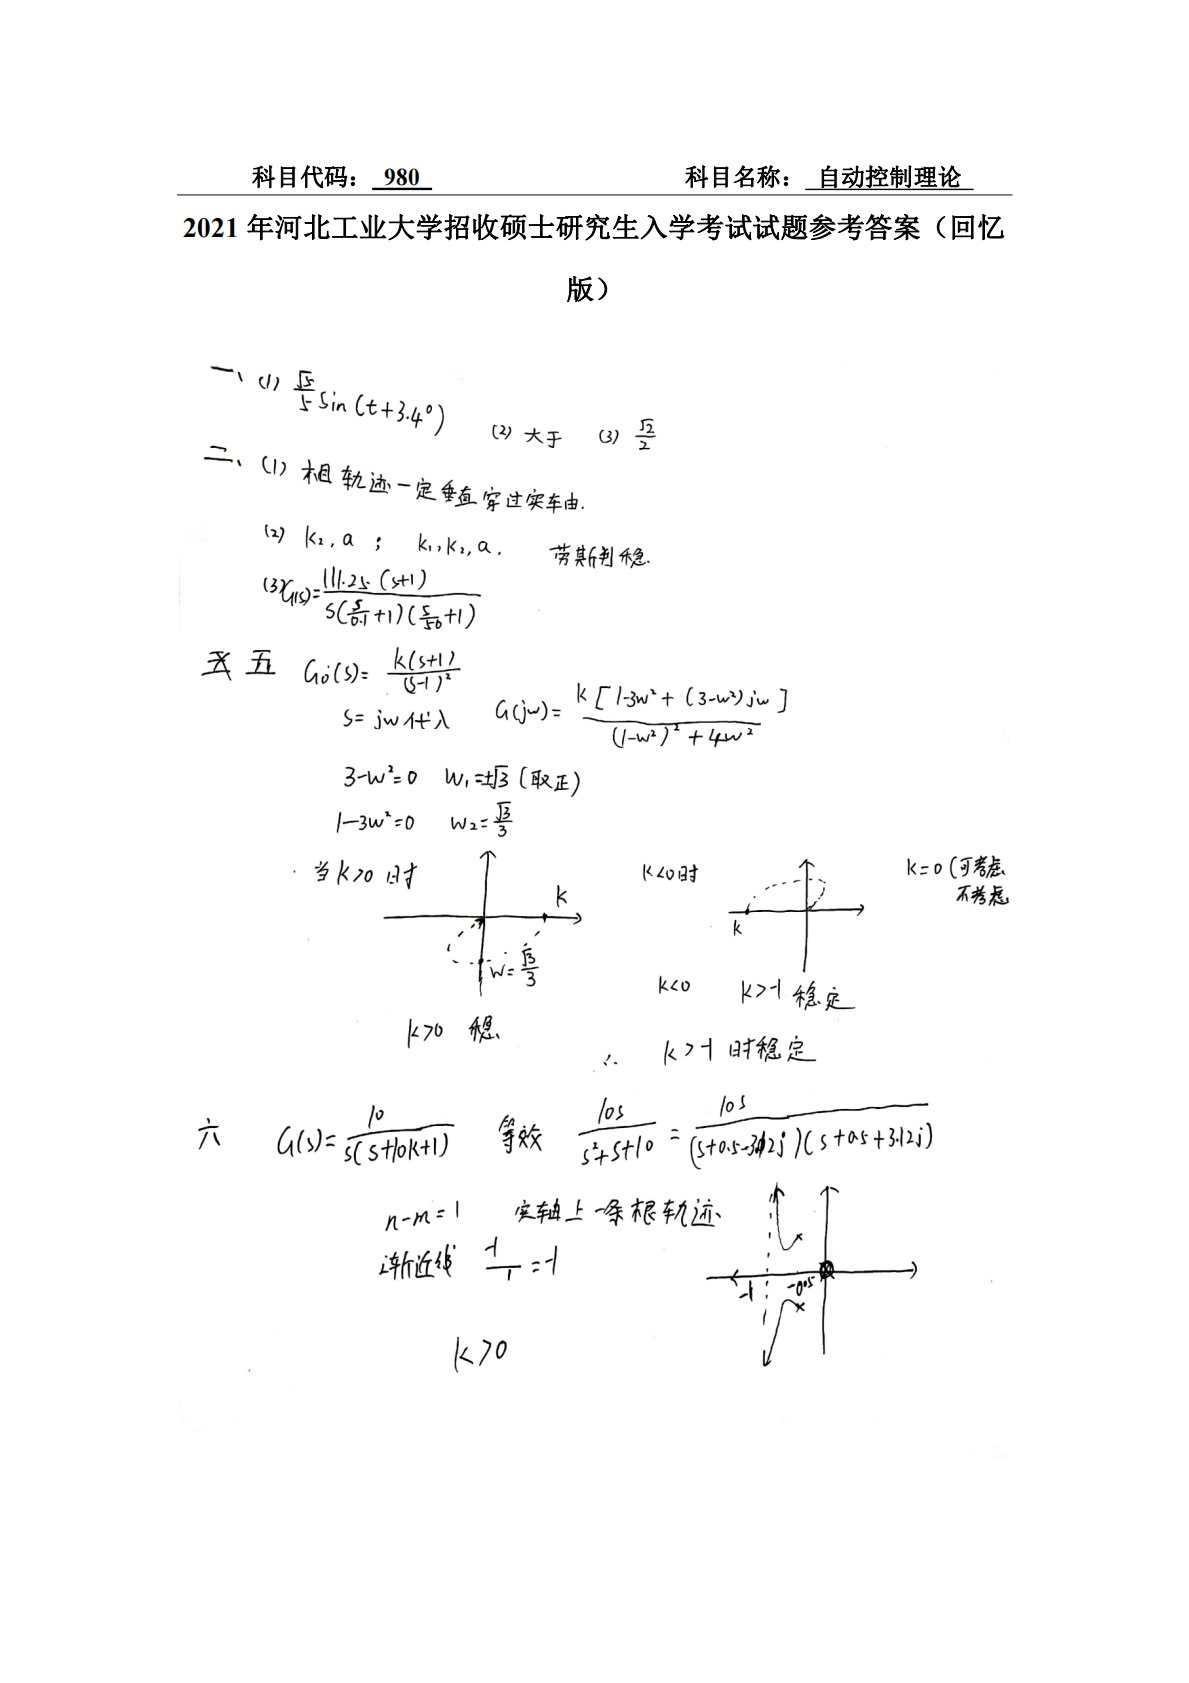 科目代码： 980 科目名称： 自动控制理论
2021 年河北工业大学招收硕士研究生入学考试试题参考答案（回忆
版）
一、(1) √5/5 Sin(t+3.4°) (2) 大于 (3) √2/2
二、(1) 相轨迹一定垂直穿过实轴.
(2) k₂, a ; k₁, k₂, a. 劳斯判稳.
(3) G(s)= 111.25(s+1) / s(s/0.1+1)(s/50+1)
五 G₀(s)= k(s+1)/(s-1)²
s=jw代入 G(jw)= k[1-3w²+(3-w²)jw] / (1-w²)²+4w²
3-w²=0 w₁=±√3 (取正)
1-3w²=0 w₂=√3/3
当k>0时 k k<0时 k k=0 (可考虑
不考虑
w=√3/3
k>0 稳 k<0 k>-1 稳定
∴ k>-1 时稳定
六 G(s)= 10/s(s+10k+1) 等效 10s/s²+s+10 = 10s/(s+0.5-3.12j)(s+0.5+3.12j)
n-m=1 实轴上一条根轨迹、
渐近线 -1/1 =-1
-1 -0.5
k>0